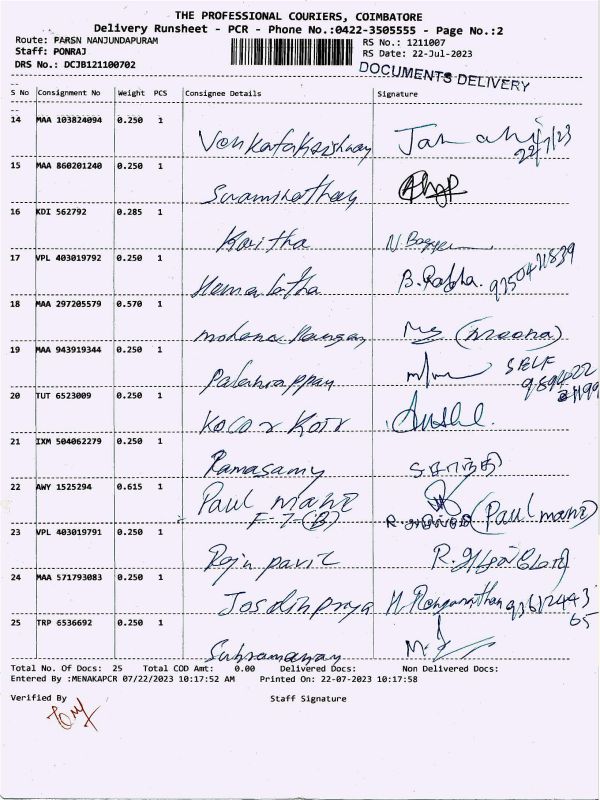 THE PROFESSIONAL COURIERS, COIMBATORE
Delivery Runsheet - PCR - Phone No.:0422-3505555 - Page No.:2
Route: PARSN NANJUNDAPURAM
RS No.: 1211007
Staff: PONRAJ
RS Date: 22-Jul-2023
DRS No.: DCJB121100702
DOCUMENTS DELIVERY
S No Consignment No Weight PCS Consignee Details Signature
14 MAA 103824094 0.250 1
Venkatakrishnan
22/7/23
15 MAA 860201240 0.250 1
Swaminathan
16 KDI 562792 0.285 1
Kavitha N.
17 VPL 403019792 0.250 1
Hemalatha B. Radha.
18 MAA 297205579 0.570 1
(Meena)
19 MAA 943919344 0.250 1
Palaniappan SELF
20 TUT 6523009 0.250 1
21 IXM 504062279 0.250 1
Ramasamy
22 AWY 1525294 0.615 1
Paul mani
F-7-(B) (Paul mani)
23 VPL 403019791 0.250 1
R.
24 MAA 571793083 0.250 1
25 TRP 6536692 0.250 1
Subramanian
Total No. Of Docs: 25 Total COD Amt: 0.00 Delivered Docs: Non Delivered Docs:
Entered By :MENAKAPCR 07/22/2023 10:17:52 AM Printed On: 22-07-2023 10:17:58
Verified By Staff Signature